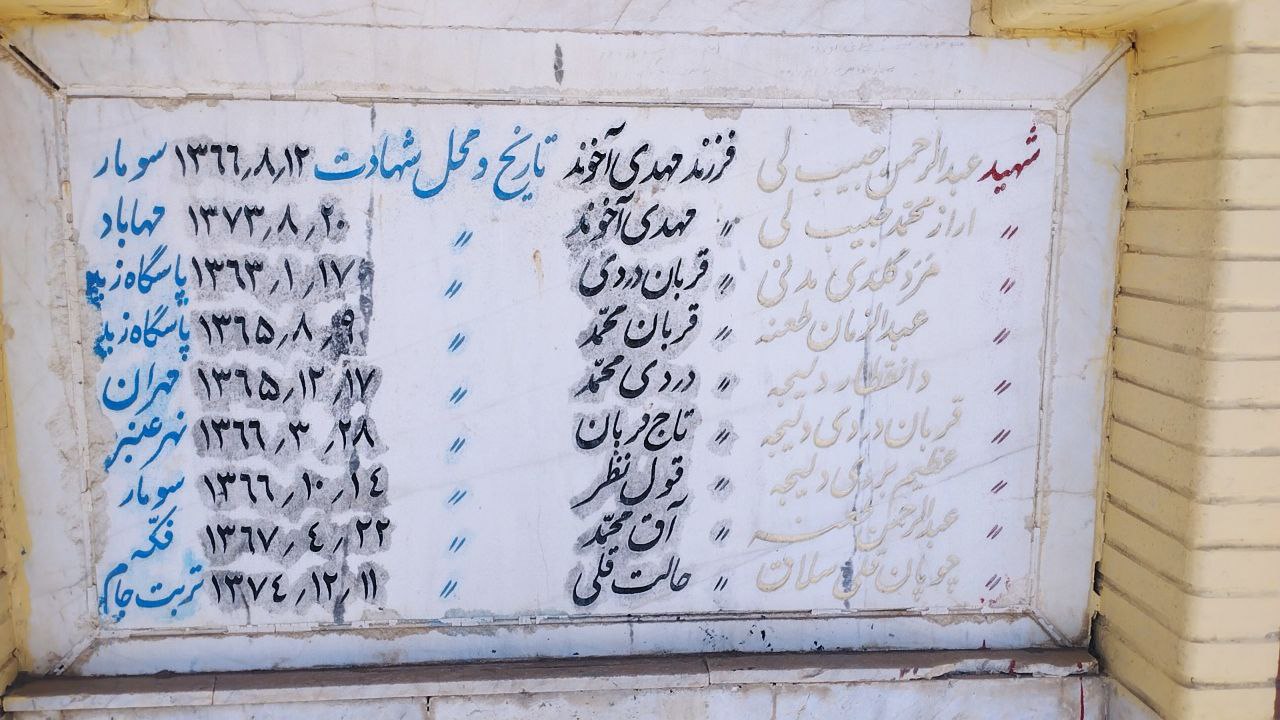 شهید عبدالرحمن حبیب لی فرزند مهدی آخوند تاریخ و محل شهادت ۱۳۶۶٫۸٫۱۲ سومار
〃 اراز محمد حبیب لی 〃 مهدی آخوند 〃 ۱۳۷۳٫۸٫۲۰ مهاباد
〃 گلدی مدنی 〃 قربان دردی 〃 ۱۳۶۳٫۱٫۱۷ پاسگاه زید
〃 عبدالزمان طعنه 〃 قربان محمّد 〃 ۱۳۶۵٫۸٫۹ پاسگاه زید
〃 دلیجه 〃 دردی محمّد 〃 ۱۳۶۵٫۱۲٫۱۷ مهران
〃 قربان دردی دلیجه 〃 تاج قربان 〃 ۱۳۶۶٫۳٫۲۸ نهر عنبر
〃 عظیم بردی دلیجه 〃 قول نظر 〃 ۱۳۶۶٫۱۰٫۱٤ سومار
〃 عبدالرحمن طعنه 〃 آق محمّد 〃 ۱۳۶۷٫٤٫۲۲ فکّه
〃 چوپان قلی سلاق 〃 حالت قلی 〃 ۱۳۷٤٫۱۲٫۱۱ تربت جام